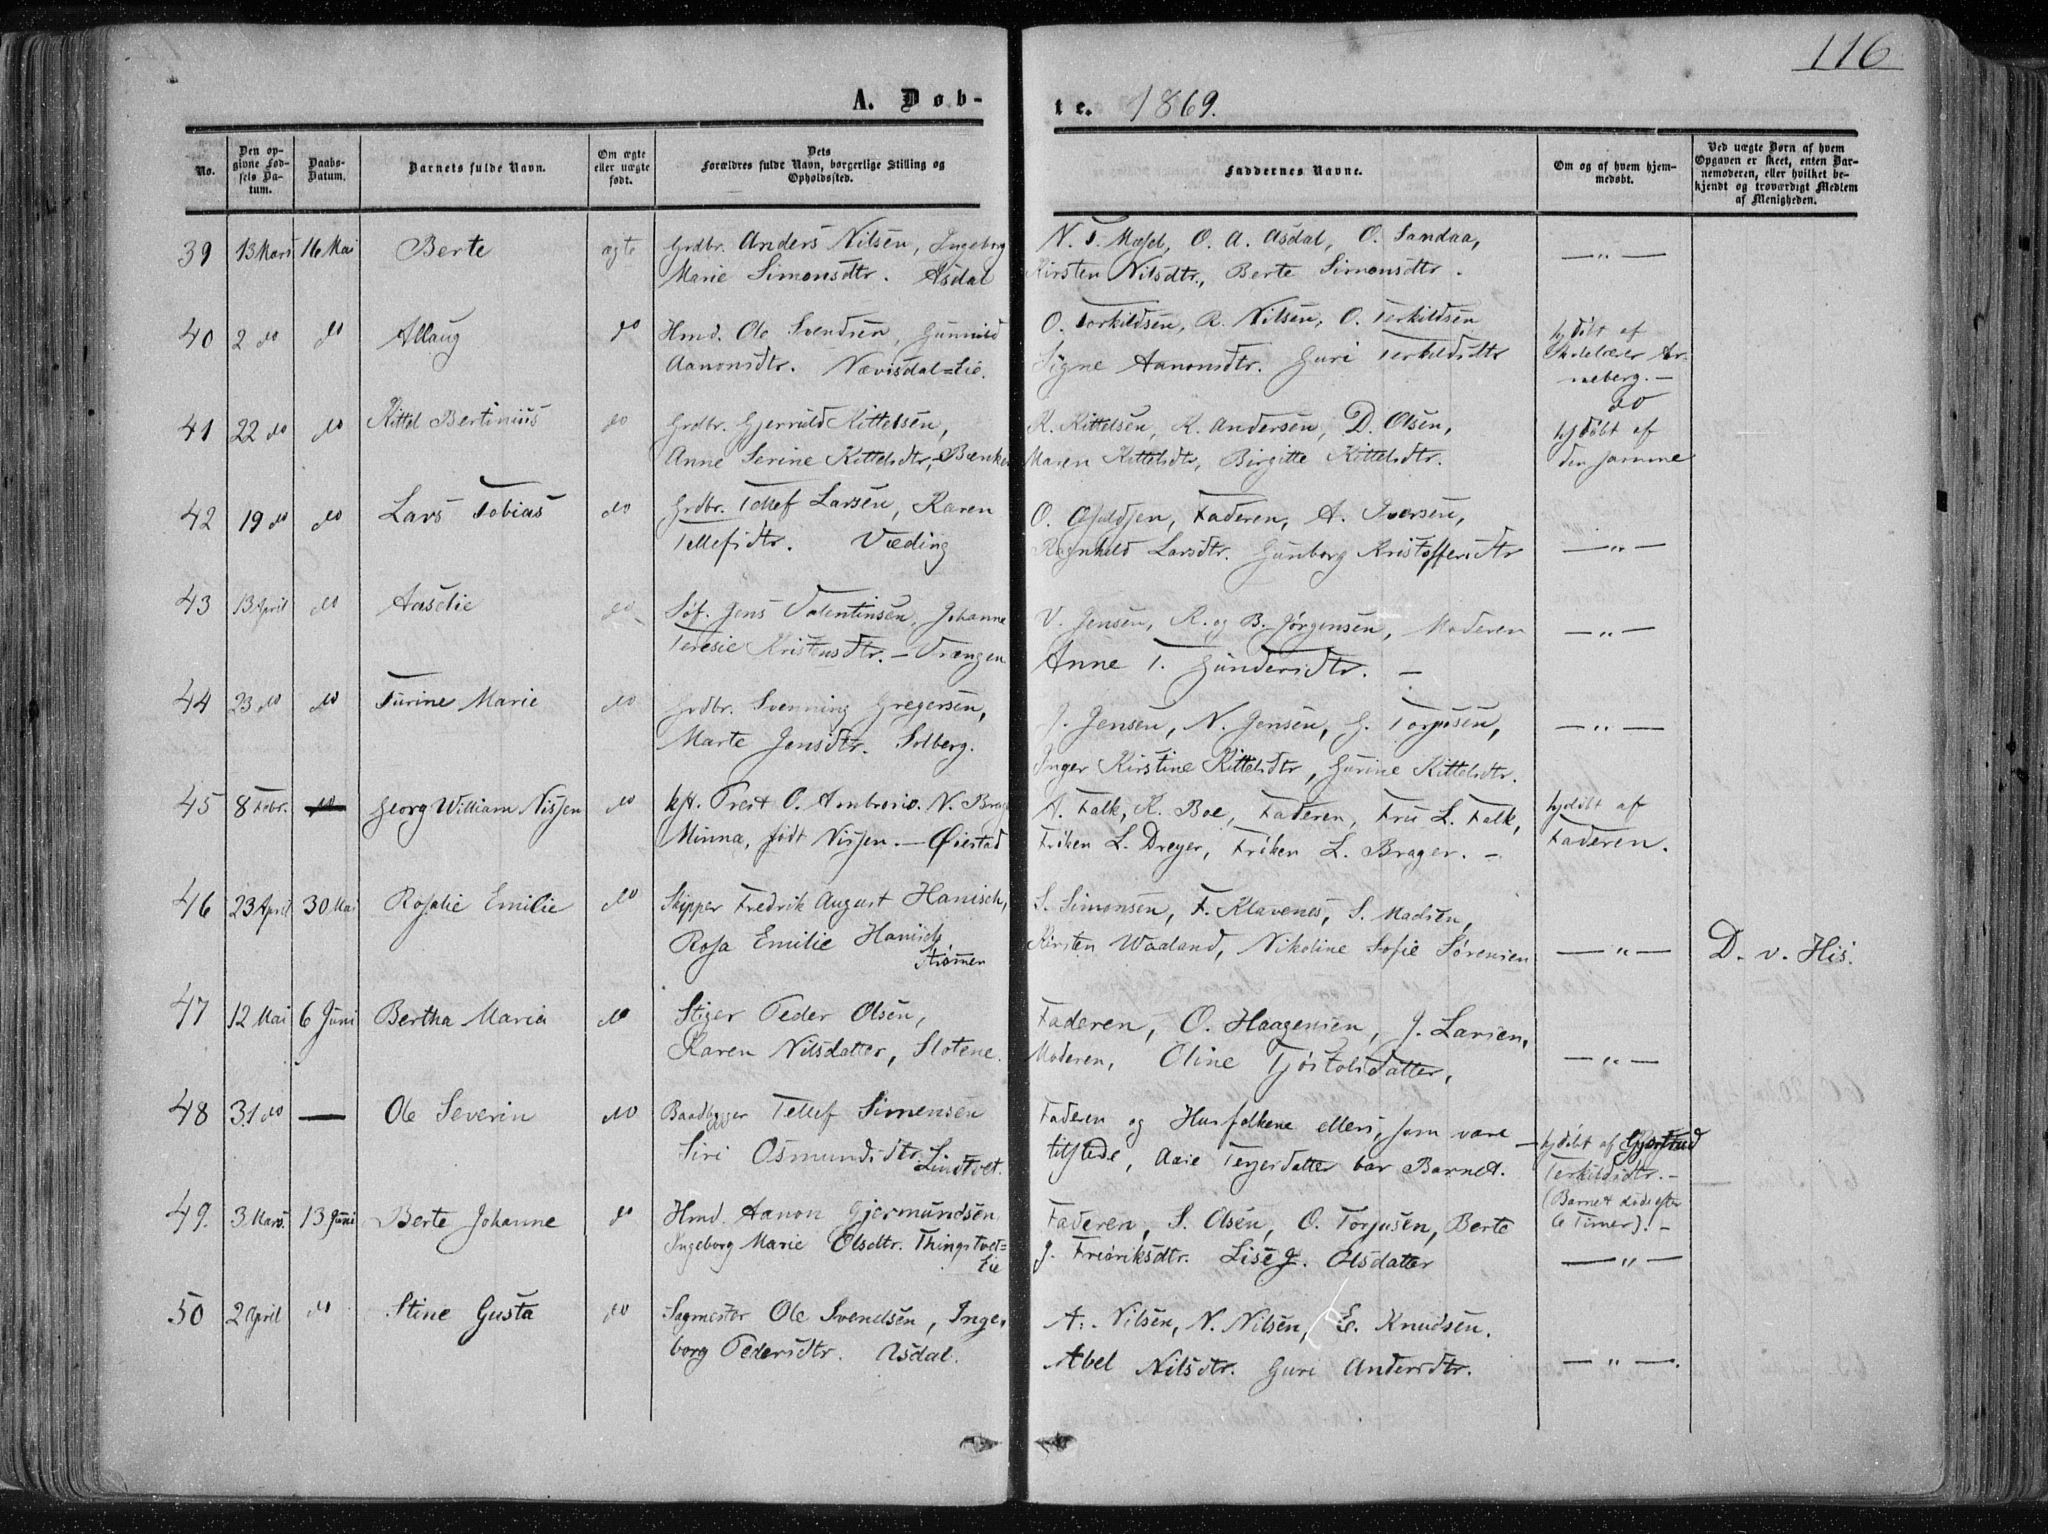 116
A. Døb-
te. 1869.
No.
Den opgivne Fødsels Datum.
Daabs-Datum.
Barnets fulde Navn.
Om ægte eller uægte født.
Dets Forældres fulde Navn, borgerlige Stilling og Opholdssted.
Faddernes Navne.
Om og af hvem hjemmedøbt.
Ved uægte Børn af hvem Opgaven er skeet, enten Barnemoderen, eller hvilket bekjendt og troværdigt Medlem af Menigheden.
39 13 Mars 16 Mai Berte ægte Grdbr. Anders Nilsen, Ingeborg N. T. O. A. Asdal, O. Sandaa, — " —
Marie Simonsdtr. Asdal Kirsten Nilsdtr., Berte Simonsdtr.
40 2 do do Allaug do Hmd. Ole Svendsen, Gunnild O. Torkildsen, A. Nilsen, O. Terkildsen hjdøbt af
Aanonsdtr. Nævisdal=Eie. Signe Aanonsdtr. Guri Terkildsdtr Skolelærer Ar-
neberg. —
41 22 do do Kittel Bertinius do Grdbr. Gjeruld Kittelsen, K. Kittelsen, K. Andersen, D. Olsen, do hjdøbt af
Anne Serine Kittelsdtr, Bænker Maren Kittelsdtr, Birgitte Kittelsdtr. den samme
42 19 do do Lars Tobias do Grdbr. Tellef Larsen, Karen O. Faderen, A. Iversen,
Tellefsdtr. Væding Ragnhild Larsdtr. Gunborg Kristoffersdtr — " —
43 13 April do Aaselie do Søf. Jens Valentinsen, Johanne V. Jensen, K. og B. Jørgensen, Moderen — " —
Teresie Kristensdtr. — Vrængen Anne T. Gundersdtr. —
44 23 do do Turine Marie do Grdbr. Svenning Gregersen, J. Jensen, N. Jensen, G. Torjusen, — " —
Marte Jensdtr. Solberg. Inger Kirstine Kittelsdtr, Gurine Kittelsdtr.
45 8 Febr. do Georg William Nissen do Prest O. Ambrosio. N. Brag A. Falk, K. Boe, Faderen, Fru L. Falk, hjdøbt af
Minna, født Nissen. — Øiestad Frøken L. Dreyer, Frøken L. Brager. — Faderen.
46 23 April 30 Mai Rosalie Emilie do Skipper Fredrik August Hanisch, S. Simonsen, F. Klavenes, S. Madsen,
Rosa Emilie Hanisch Kirsten Waaland, Nikoline Sofie Sørensen — " — D. v. His.
Strømen
47 12 Mai 6 Juni Bertha Maria do Stiger Peder Olsen, Faderen, O. Haagensen, J. Larsen,
Karen Nilsdatter, Slotene. Moderen, Oline Tjøstolsdatter, — " —
48 31 do — Ole Severin do Baadbygger Tellef Simensen Faderen og Husfolkene ellers, som vare
Siri Osmundsdtr. Lindtvet. tilstede, Aase Terjesdatter bar Barnet. hjdøbt af Gjertrud
Terkildsdtr. —
(Barnet døde efter
6 Timer). —
49. 3 Mars. 13 Juni Berte Johanne do Hmd. Aanon Gjermundsen Faderen, S. Olsen, O. Torjusen, Berte
Ingeborg Marie Olsdtr. Thingstvet= J. Fredriksdtr. Lise J. Olsdatter — " —
Eie
50 2 April do Stine Gusta do Sagmester Ole Svendsen, Inge- A. Nilsen, N. Nilsen, E. Knudsen.
borg Pedersdtr. Asdal. Abel Nilsdtr. Guri Andersdtr. — " —.